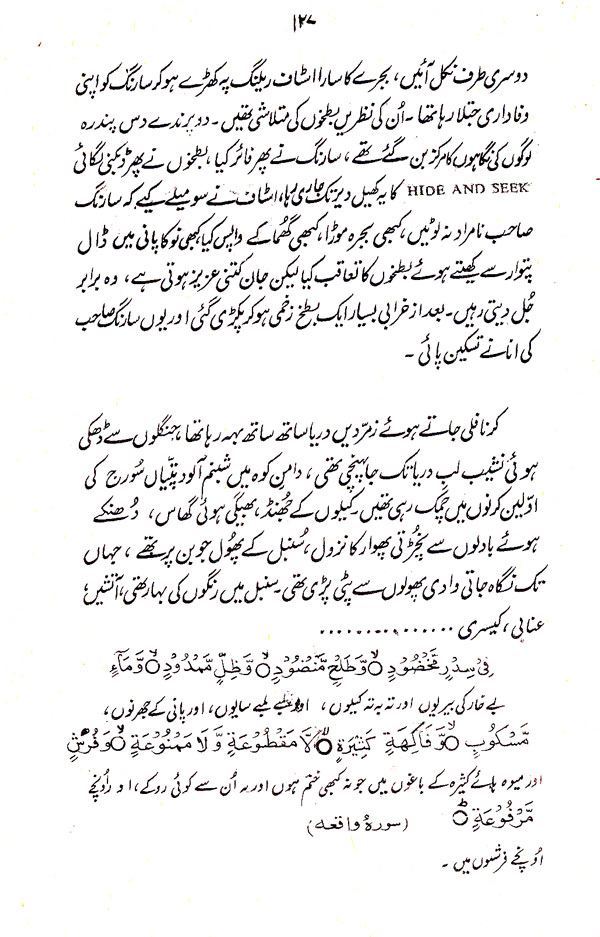 ۱۲۷
دوسری طرف نکل آئیں، بجرے کا سارا اسٹاف ریلنگ پہ کھڑے ہو کر سارنگ کو اپنی
وفاداری جتلا رہا تھا۔ اُن کی نظریں بطخوں کی متلاشی تھیں۔ دو پرندے دس پندرہ
لوگوں کی نگاہوں کا مرکز بن گئے تھے، سارنگ نے پھر فائر کیا، بطخوں نے پھر ڈبکنی لگائی
HIDE AND SEEK کا یہ کھیل دیر تک جاری رہا، اسٹاف نے سو میلے کیے کہ سارنگ
صاحب نامراد نہ لوٹیں، کبھی بجرہ موڑا، کبھی گھُما کے واپس کیا کبھی نوکا پانی میں ڈال
پتوار سے کھیتے ہوئے بطخوں کا تعاقب کیا لیکن جان کتنی عزیز ہوتی ہے، وہ برابر
جُل دیتی رہیں۔ بعد از خرابی بسیار ایک بطخ زخمی ہو کر پکڑی گئی اور یوں سارنگ صاحب
کی انا نے تسکین پائی ۔
کرنافلی جاتے ہوئے زمرّدیں دریا ساتھ ساتھ بہہ رہا تھا، جنگلوں سے ڈھکی
ہوئی نشیب لبِ دریا تک جا پہنچی تھی، دامنِ کوہ میں شبنم آلود پتیّاں سُورج کی
اوّلین کرنوں میں چمک رہی تھیں۔ کیلوں کے جُھنڈ، بھیگی ہوئی گھاس، دُھنکے
ہوئے بادلوں سے نچُڑتی پھوار کا نزول، سُنبل کے پھُول جوبن پر تھے، جہاں
تک نگاہ جاتی وادی پھولوں سے پٹی پڑی تھی۔ سنبل میں رنگوں کی بہار تھی، آتشیں،
عنابی، کیسری ..............
فِیْ سِدْرٍ مَّخْضُوْدٍ ۙ وَّطَلْحٍ مَّنْضُوْدٍ ۙ وَّظِلٍّ مَّمْدُوْدٍ ۙ وَّمَآءٍ
بے خار کی بیریوں اور تہ بہ تہ کیلوں، اور لمبے لمبے سایوں، اور پانی کے جھرنوں،
مَّسْكُوْبٍ ۙ وَّفَاكِهَةٍ كَثِيْرَةٍ ۙ لَّا مَقْطُوْعَةٍ وَّلَا مَمْنُوْعَةٍ ۙ وَّفُرُشٍ
اور میوہ ہائے کثیرہ کے باغوں میں جو نہ کبھی ختم ہوں اور نہ اُن سے کوئی روکے، اور اُونچے
مَّرْفُوْعَةٍ ؕ (سورۂ واقعہ)
اُونچے فرشوں میں ۔